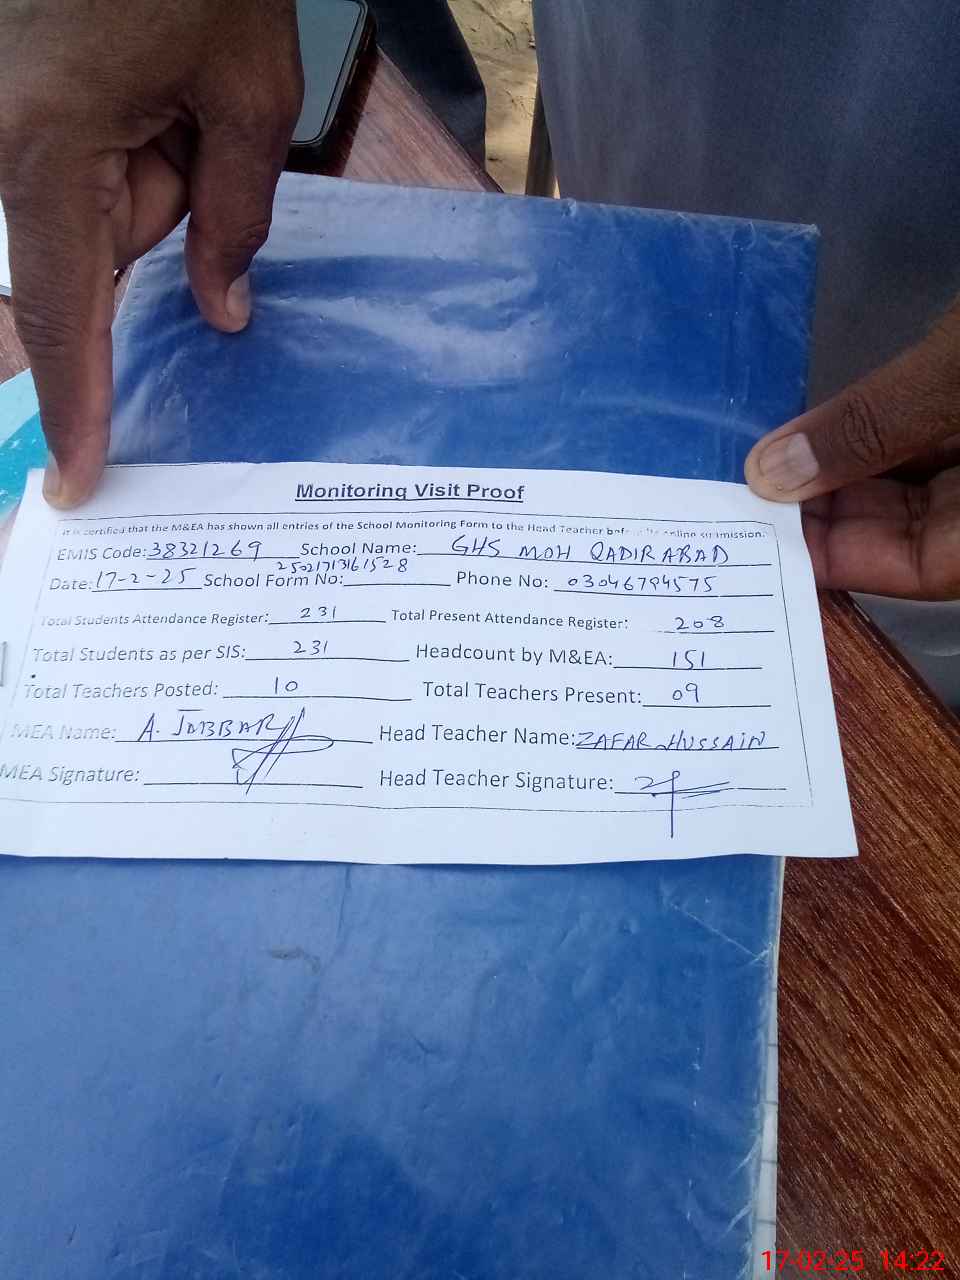 Monitoring Visit Proof
It is certified that the M&EA has shown all entries of the School Monitoring Form to the Head Teacher before its online submission.
EMIS Code: 38321269 School Name: GHS MOH QADIR ABAD
Date: 17-2-25 School Form No: 2502171316 1528 Phone No: 03046794575
Total Students Attendance Register: 231 Total Present Attendance Register: 208
Total Students as per SIS: 231 Headcount by M&EA: 151
Total Teachers Posted: 10 Total Teachers Present: 09
MEA Name: A. JABBAR Head Teacher Name: ZAFAR HUSSAIN
MEA Signature: Head Teacher Signature:
17-02-25 14:22